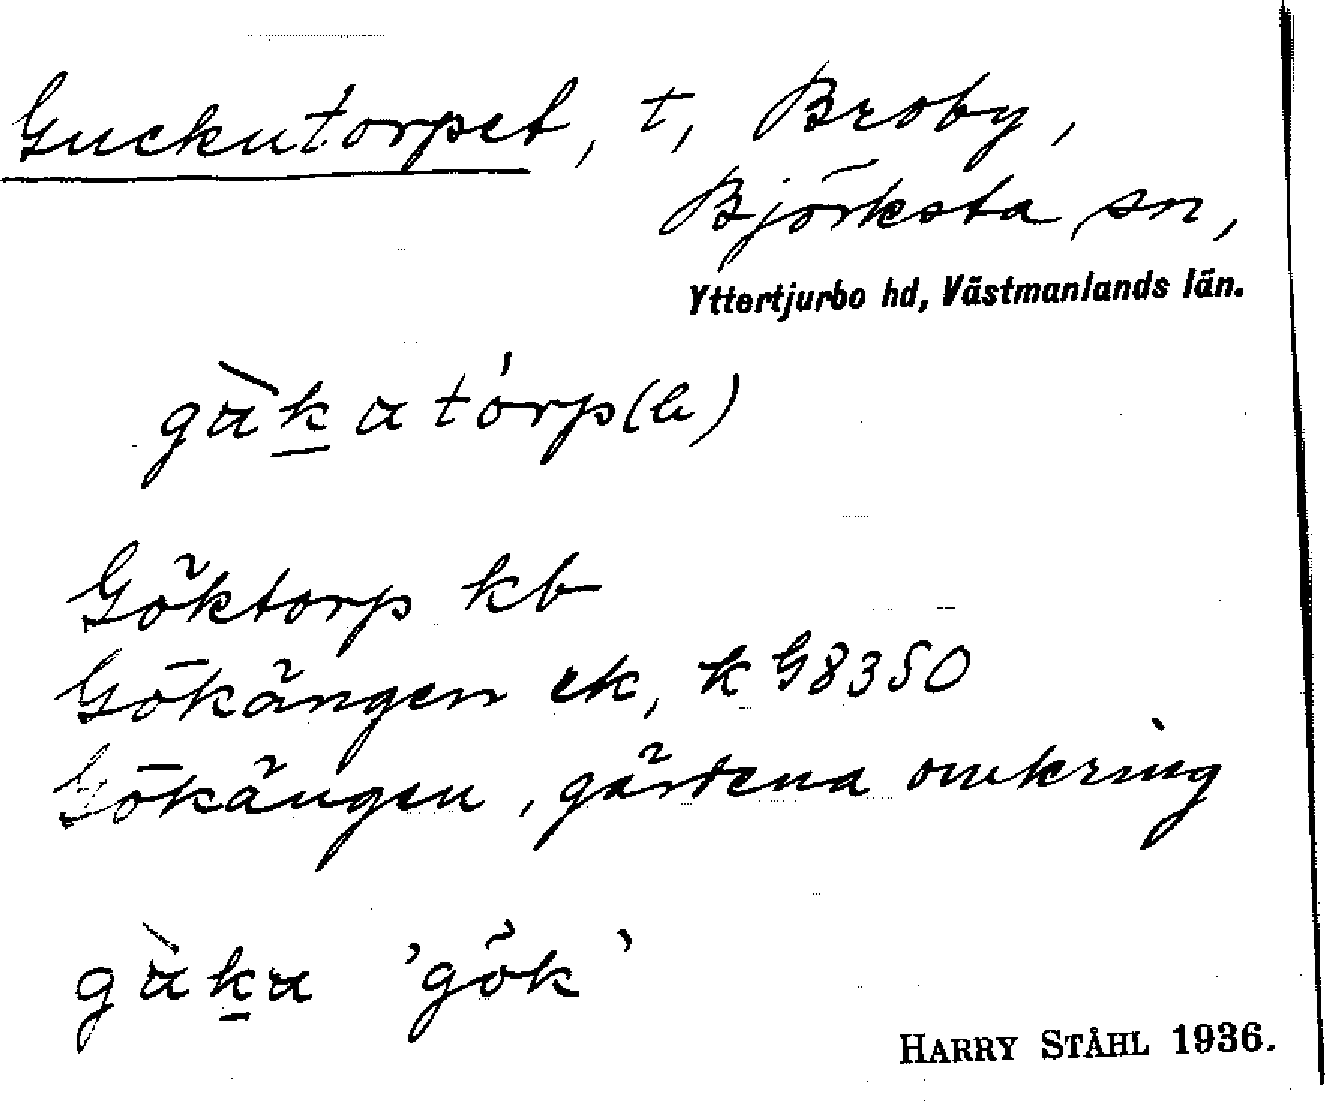 Guckutorpet, t, Broby,
Björksta sn,
Yttertjurbo hd, Västmanlands län.
gàkatórp(ə)
Göktorp kb
Gökängen ek, k G8350
Gökängen, gärdena omkring
gàka 'gök'
HARRY STÅHL 1936.